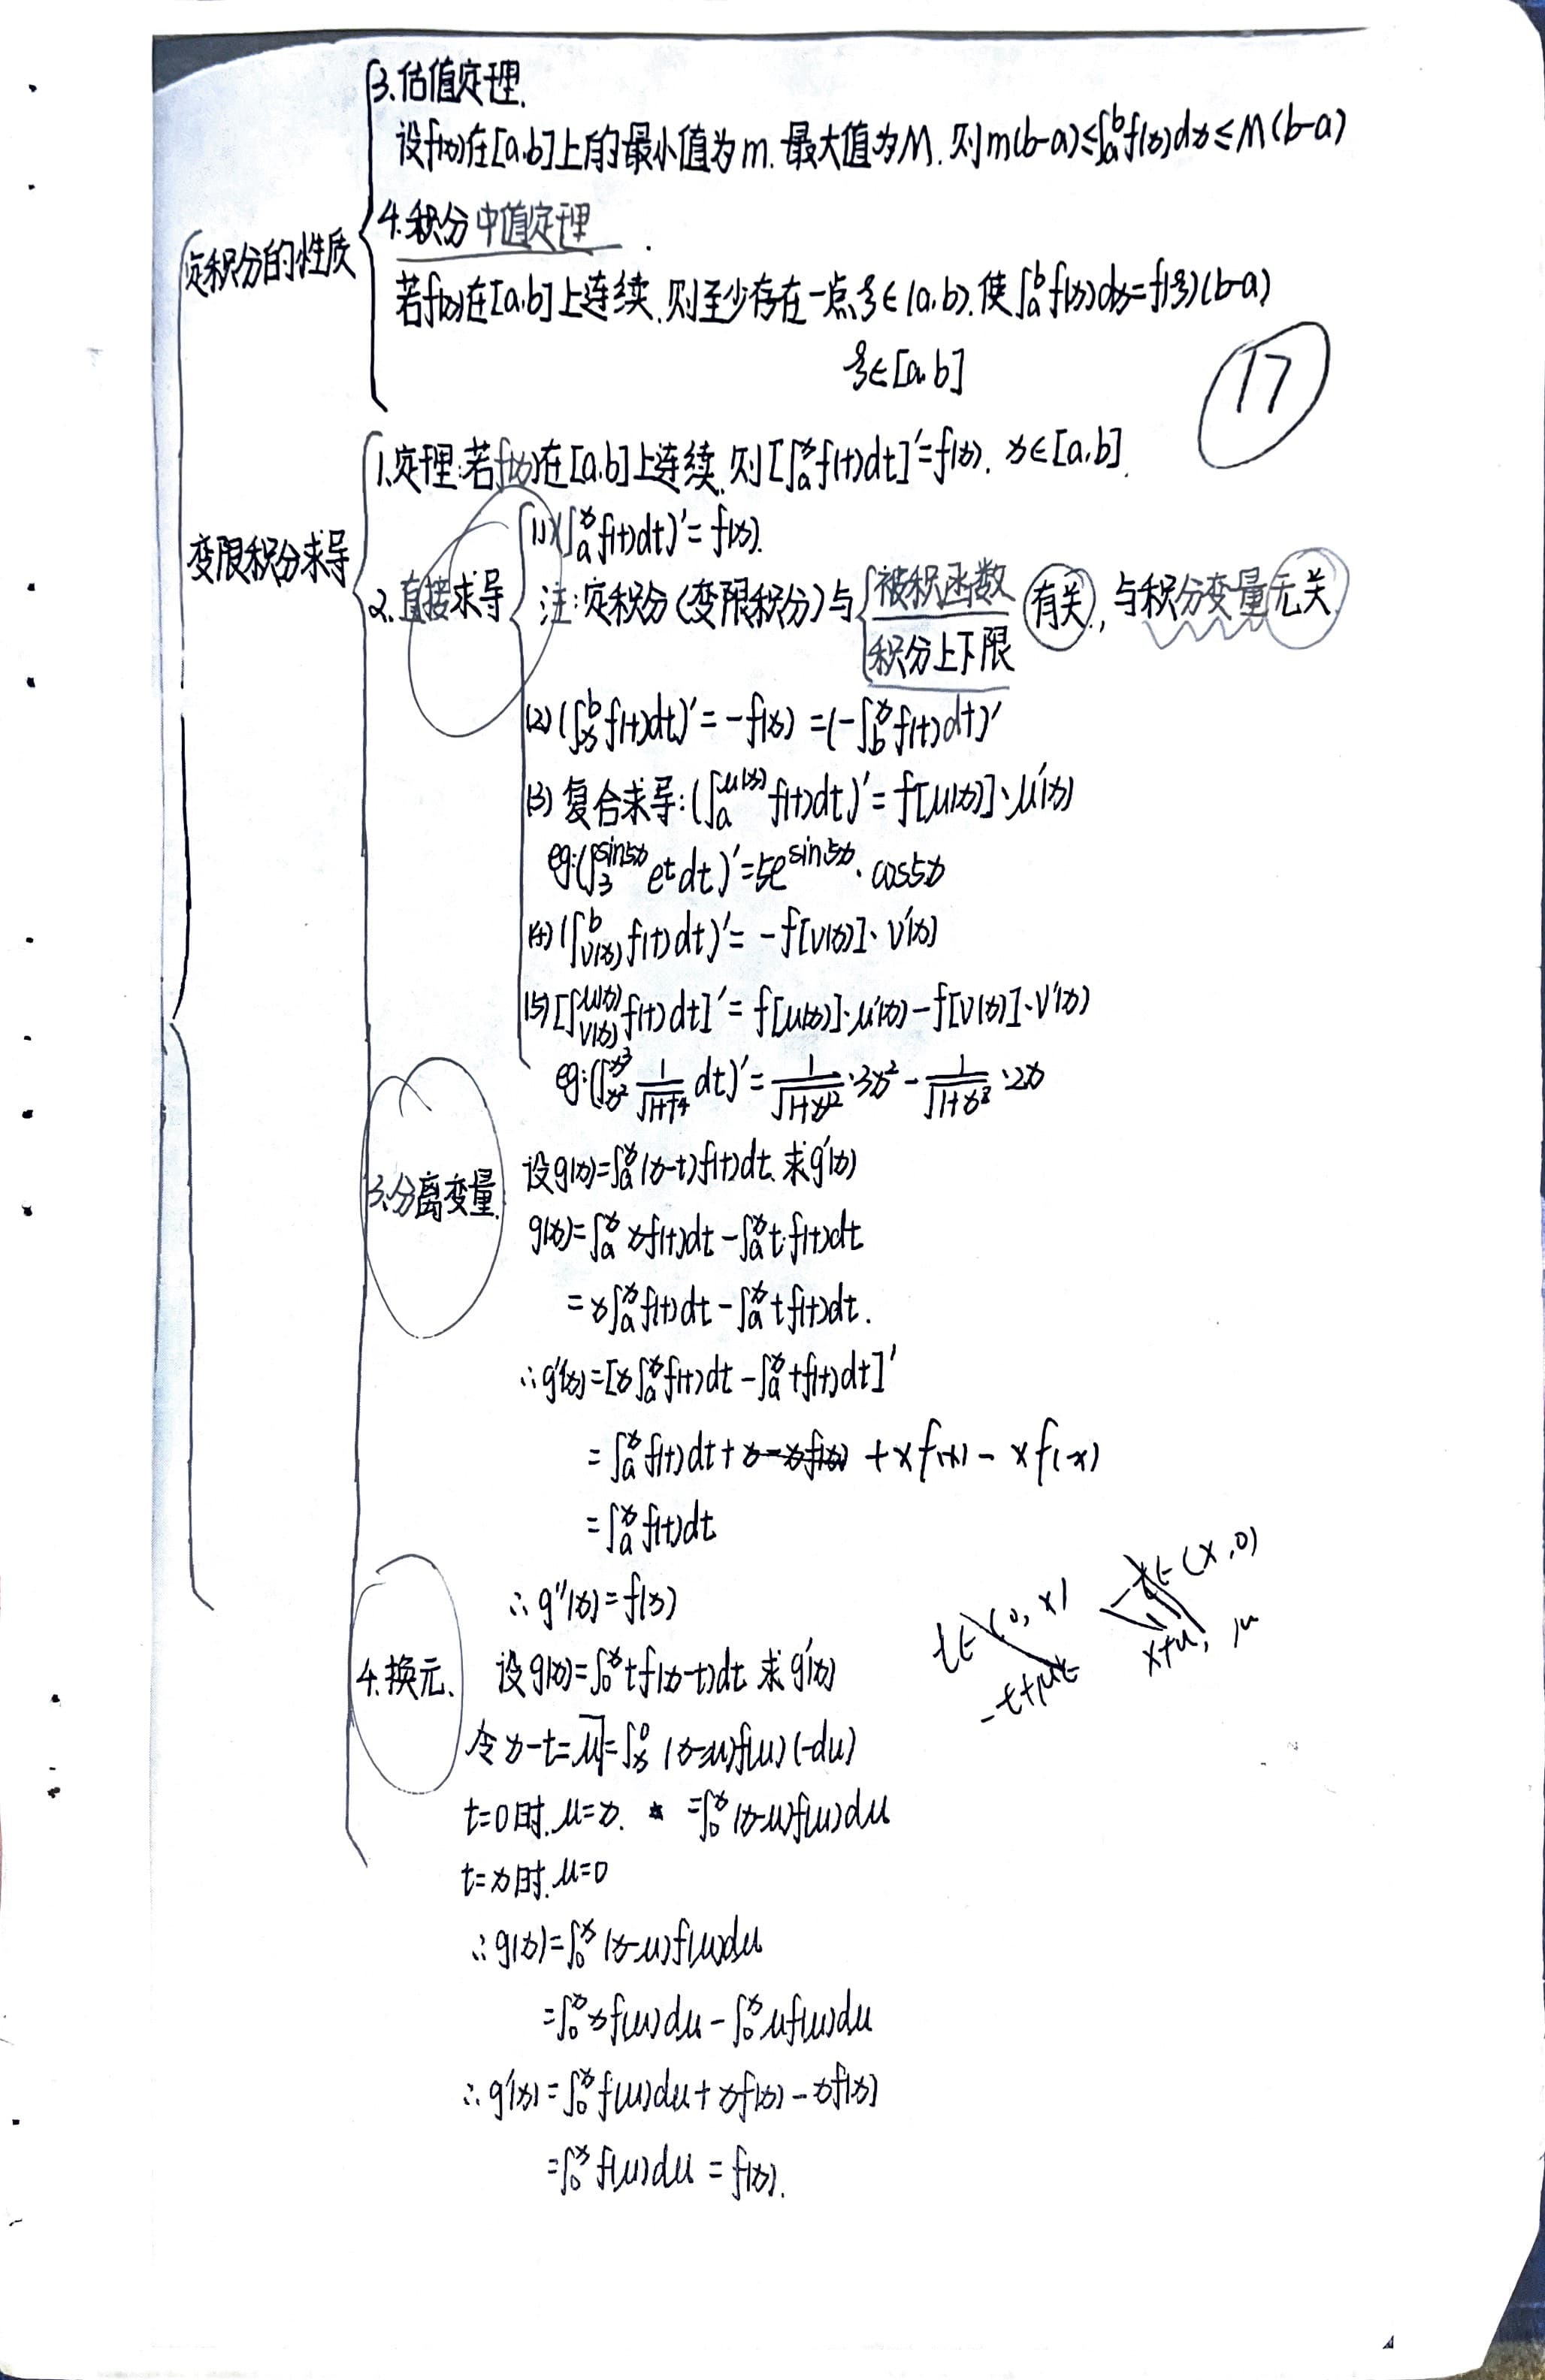 3.估值定理.
设f(x)在[a.b]上的最小值为m. 最大值为M. 则m(b-a)≤∫ₐᵇf(x)dx≤M(b-a)
4.积分中值定理
定积分的性质
若f(x)在[a.b]上连续.则至少存在一点ξ∈(a.b).使∫ₐᵇf(x)dx=f(ξ)(b-a)
ξ∈[a.b]
17
1.定理:若f(x)在[a.b]上连续.则[∫ₐˣf(t)dt]′=f(x). x∈[a.b].
变限积分求导
2.直接求导
(1)(∫ₐˣf(t)dt)′=f(x).
注:定积分(变限积分)与{被积函数 积分上下限 有关,与积分变量无关
(2)(∫ₓᵇf(t)dt)′=-f(x)=(-∫_b^x f(t)dt)′
(3)复合求导:(∫_a^{μ(x)}f(t)dt)′=f[μ(x)]·μ′(x)
eg:(∫_3^{sin5x}e^t dt)′=5e^{sin5x}·cos5x
(4)(∫_{ν(x)}^b f(t)dt)′=-f[ν(x)]·ν′(x)
(5)[∫_{ν(x)}^{μ(x)}f(t)dt]′=f[μ(x)]·μ′(x)-f[ν(x)]·ν′(x)
eg:(∫_{x²}^{x³} 1/√(1+t⁴) dt)′=1/√(1+x¹²)·3x²-1/√(1+x⁸)·2x
3.分离变量.
设g(x)=∫ₐˣ(x-t)f(t)dt.求g′(x)
g(x)=∫ₐˣxf(t)dt-∫ₐˣt·f(t)dt
=x∫ₐˣf(t)dt-∫ₐˣtf(t)dt.
∴g′(x)=[x∫ₐˣf(t)dt-∫ₐˣtf(t)dt]′
=∫ₐˣf(t)dt+xf(x)-xf(x)
=∫ₐˣf(t)dt
∴g″(x)=f(x)
t∈(0,x)
(x,0)
4.换元.
设g(x)=∫₀ˣtf(x-t)dt.求g′(x)
令x-t=μ=∫ₓ⁰(x-μ)f(μ)(-dμ)
t=0时.μ=x. =∫₀ˣ(x-μ)f(μ)dμ
t=x时.μ=0
∴g(x)=∫₀ˣ(x-μ)f(μ)dμ
=∫₀ˣxf(μ)dμ-∫₀ˣμf(μ)dμ
∴g′(x)=∫₀ˣf(μ)dμ+xf(x)-xf(x)
=∫₀ˣf(μ)dμ=f(x).